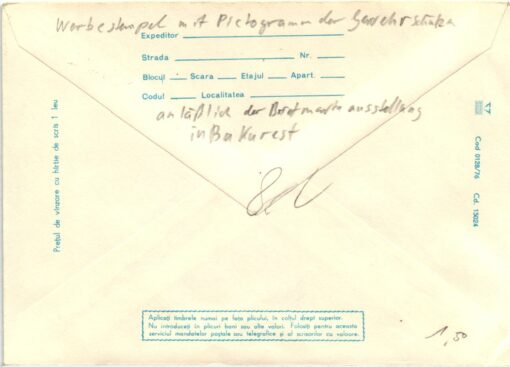 Werbestempel mit Pictogramm der Gewehrschützen
Expeditor
Strada Nr.
Blocul Scara Etajul Apart.
Codul Localitatea
anläßlich der Briefmarkenausstellung
in Bukarest
Prețul de vînzare cu hîrtie de scris 1 leu
Cod 0128/76 Cd. 15024
Aplicați timbrele numai pe fața plicului, în colțul drept superior.
Nu introduceți în plicuri bani sau alte valori. Folosiți pentru aceasta
serviciul mandatelor poștale sau telegrafice și al scrisorilor cu valoare.
1,50